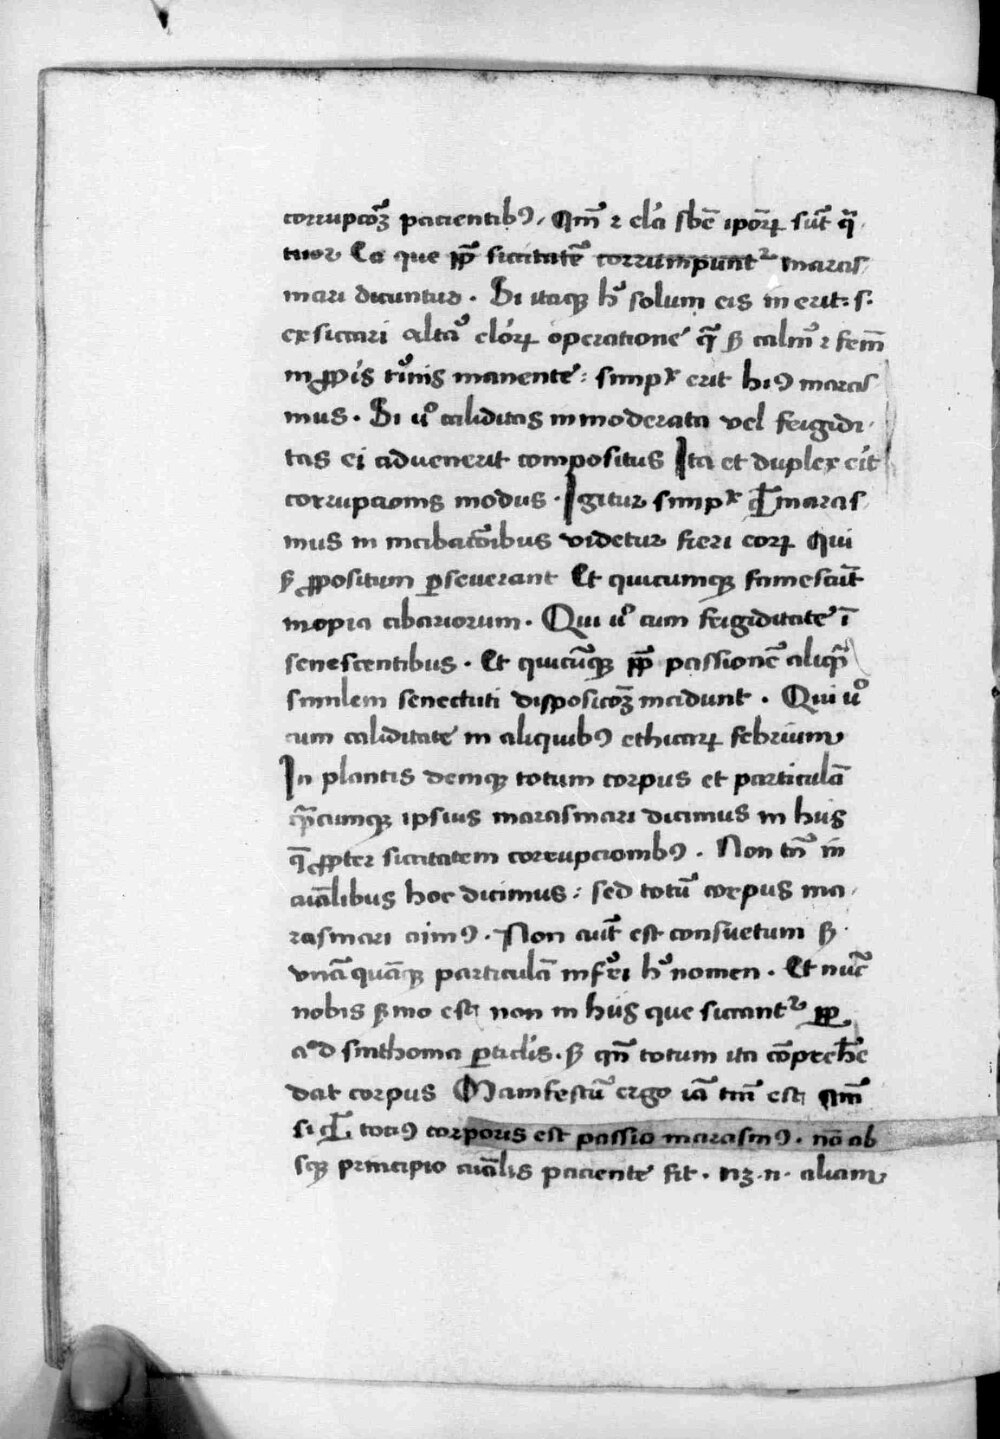 corrupcōꝫ pacientibꝰ. Qm̄ ⁊ elā sbē ipoꝝ sūt q̄
tuor Ea que ꝓp̄ siccitatē corrumpunt᷑ maras
mari dicuntur. Si itaqꝫ hͦ solum eis inerit: s.
exsiccari altā eloꝝ operatione q̄ ẞ calm̄ ⁊ fem̄
in ꝓpijs tͥmis manente: simpˣ erit hiꝰ maras
mus. Si uͦ caliditas inmoderata vel frigidi
tas ei aduenerit compositus Ita et duplex eīt
corrupcionis modus. Igitur simpˣ qͥ maras
mus in incibacōibus videtur fieri eoꝝ Qui
ẞ ꝓpositum ꝑseuerant Et quicumqꝫ famescūt
inopia cibariorum. Qui uͦ cum frigiditate ī
senescentibus. Et quicūqꝫ ꝓp̄ passionē aliqᷓ
similem senectuti disposicōꝫ incidunt. Qui uͦ
cum caliditate in aliquibꝰ ethicaꝝ febrium
In plantis deniqꝫ totum corpus et particulā
qᷓcumqꝫ ipsius marasmari dicimus in hijs
q̄ ꝓpter siccitatem corrupcionibꝰ. Non tn̄ in
aīalibus hoc dicimus: sed totū corpus ma
rasmari aimꝰ. Non aūt est consuetum ẞ
vnā quāqꝫ particulā inferri hͦ nomen. Et nūc
nobis ẞmo est non in hijs que siccant᷑ ꝓp̄
aͦd sinthoma ꝑticlis. ẞ qn̄ totum ita cōprehē
dat corpus Manifestū ergo iā tm̄ est qm̄
si qͥ totiꝰ corporis est passio marasmꝰ. nō ab
sqꝫ principio aīalis paciente fit. nꝫ .n. aliam